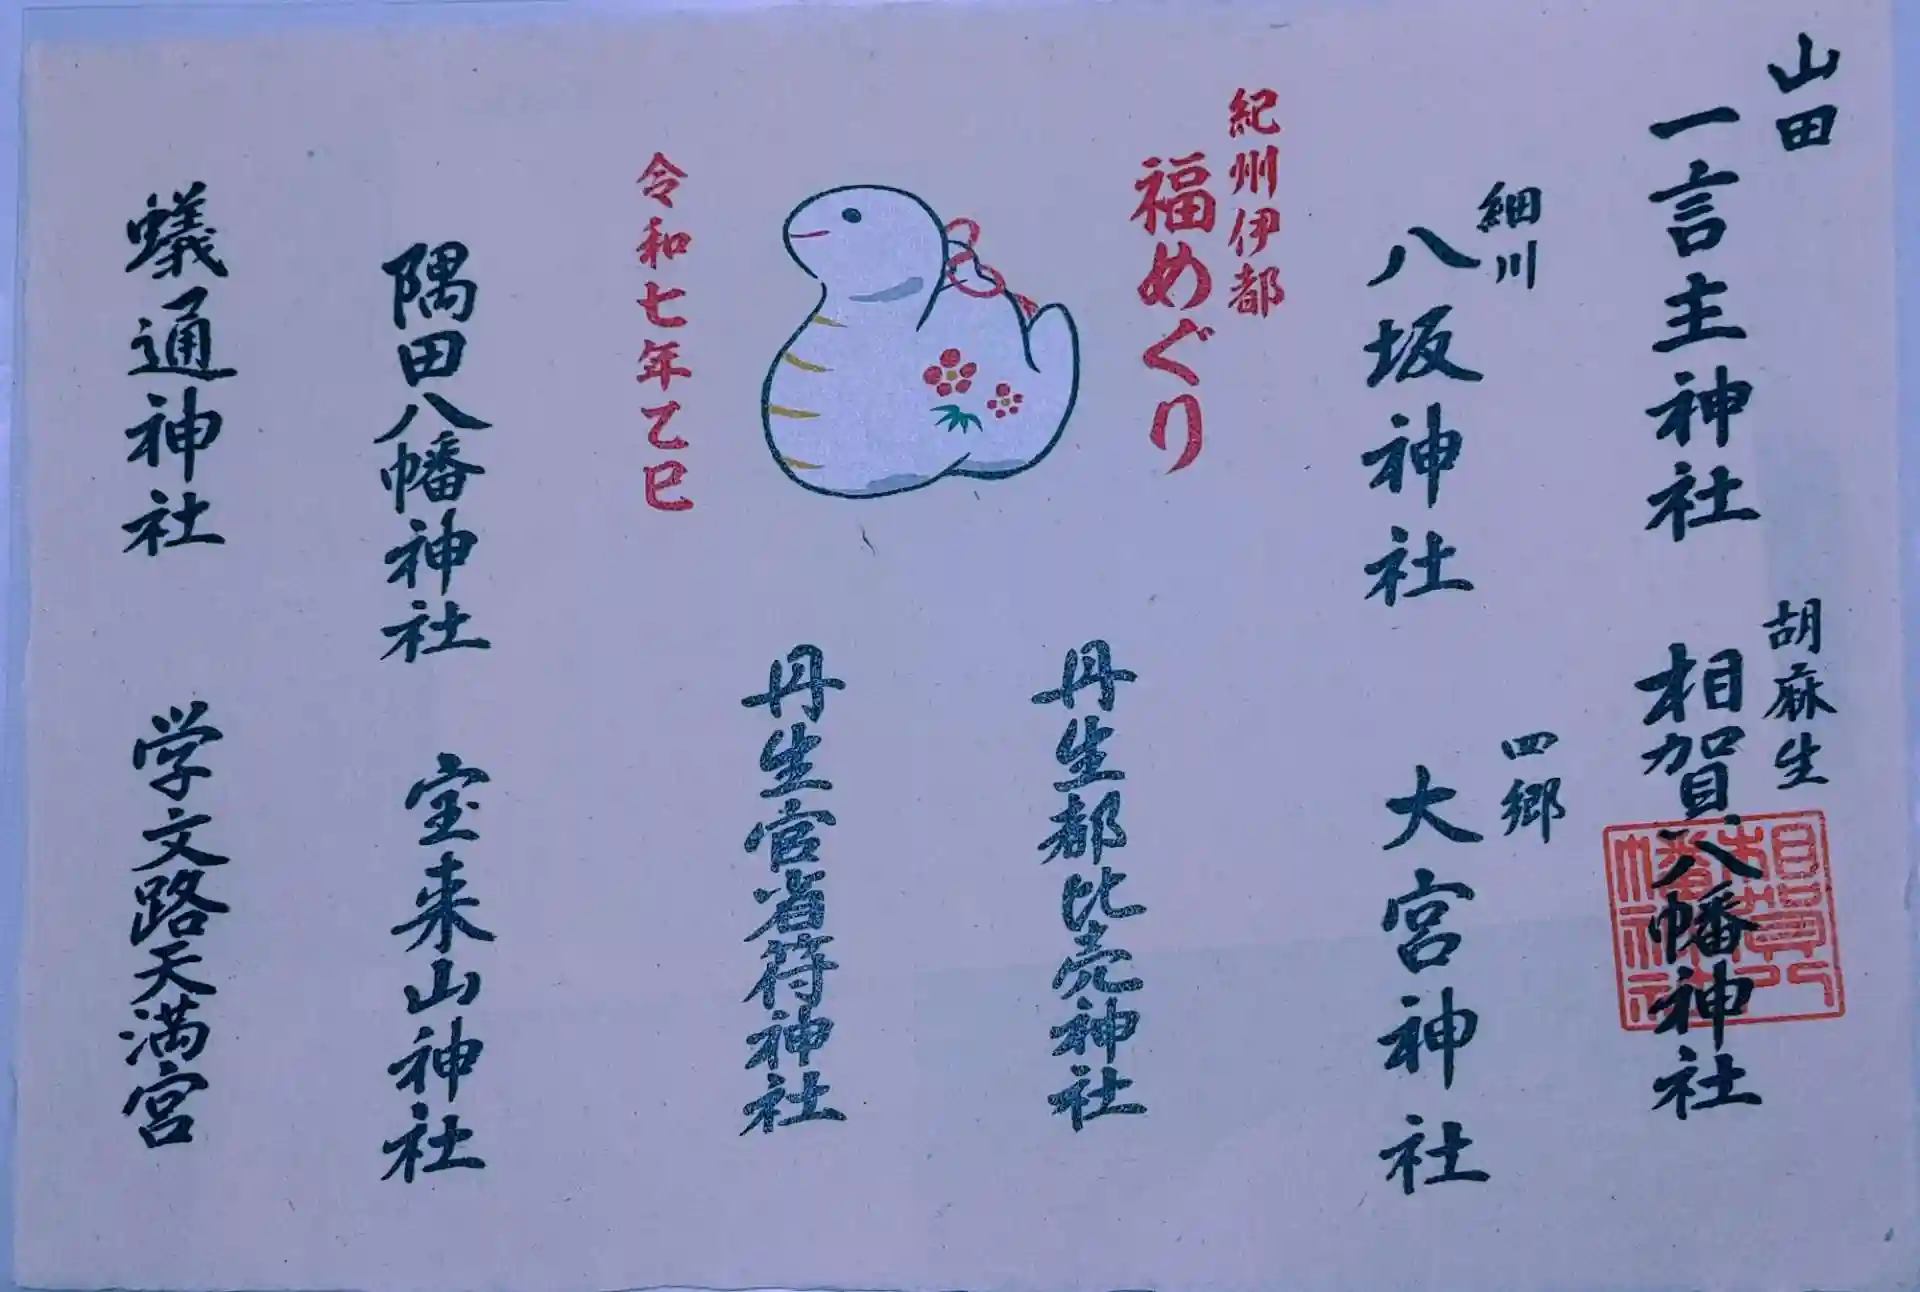 山田
一言主神社
胡麻生
相賀八幡神社
細川
八坂神社
四郷
大宮神社
紀州伊都
福めぐり
丹生都比売神社
令和七年乙巳
丹生官省符神社
隅田八幡神社
宝来山神社
蟻通神社
学文路天満宮
相賀八
幡神社